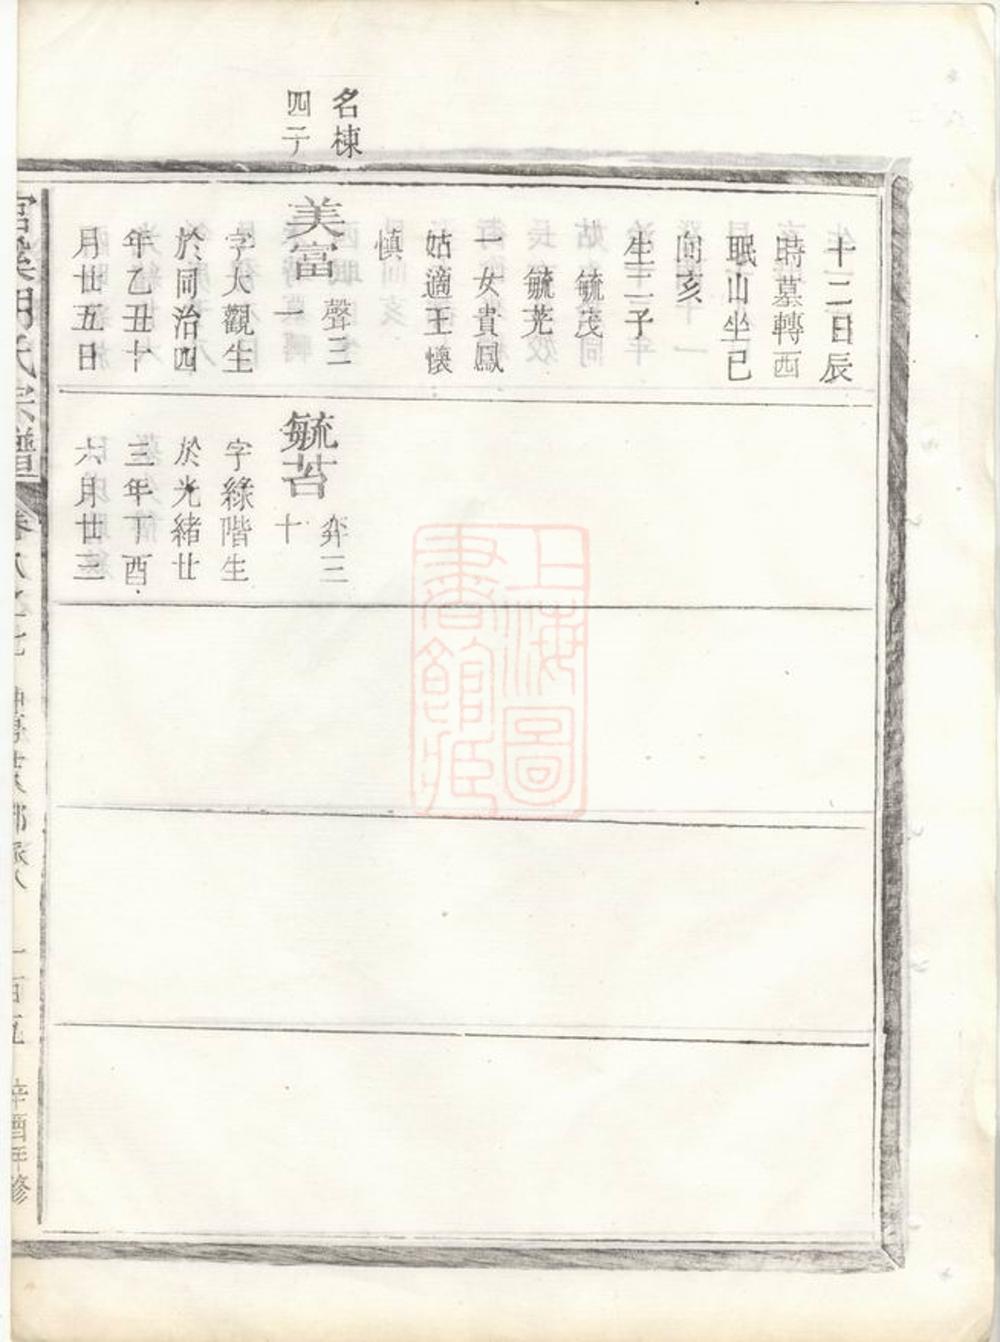 名棟
四子
十二日辰
時墓轉西
眠山坐巳
向亥
生二子
毓茂
毓芄
一女貴鳳
姑適王懷
慎
美富
聲三
一
字大觀生
於同治四
年乙丑十
月廿五日
毓苔
弈三
十
字綠階生
於光緒廿
三年丁酉
六月廿三
上海圖
書館藏
一百五
辛酉年修